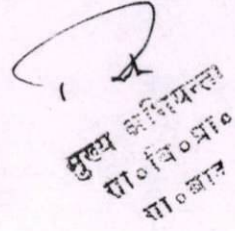 मुख्य अभियन्ता
सा०वि०प्रा०
सा०बाद